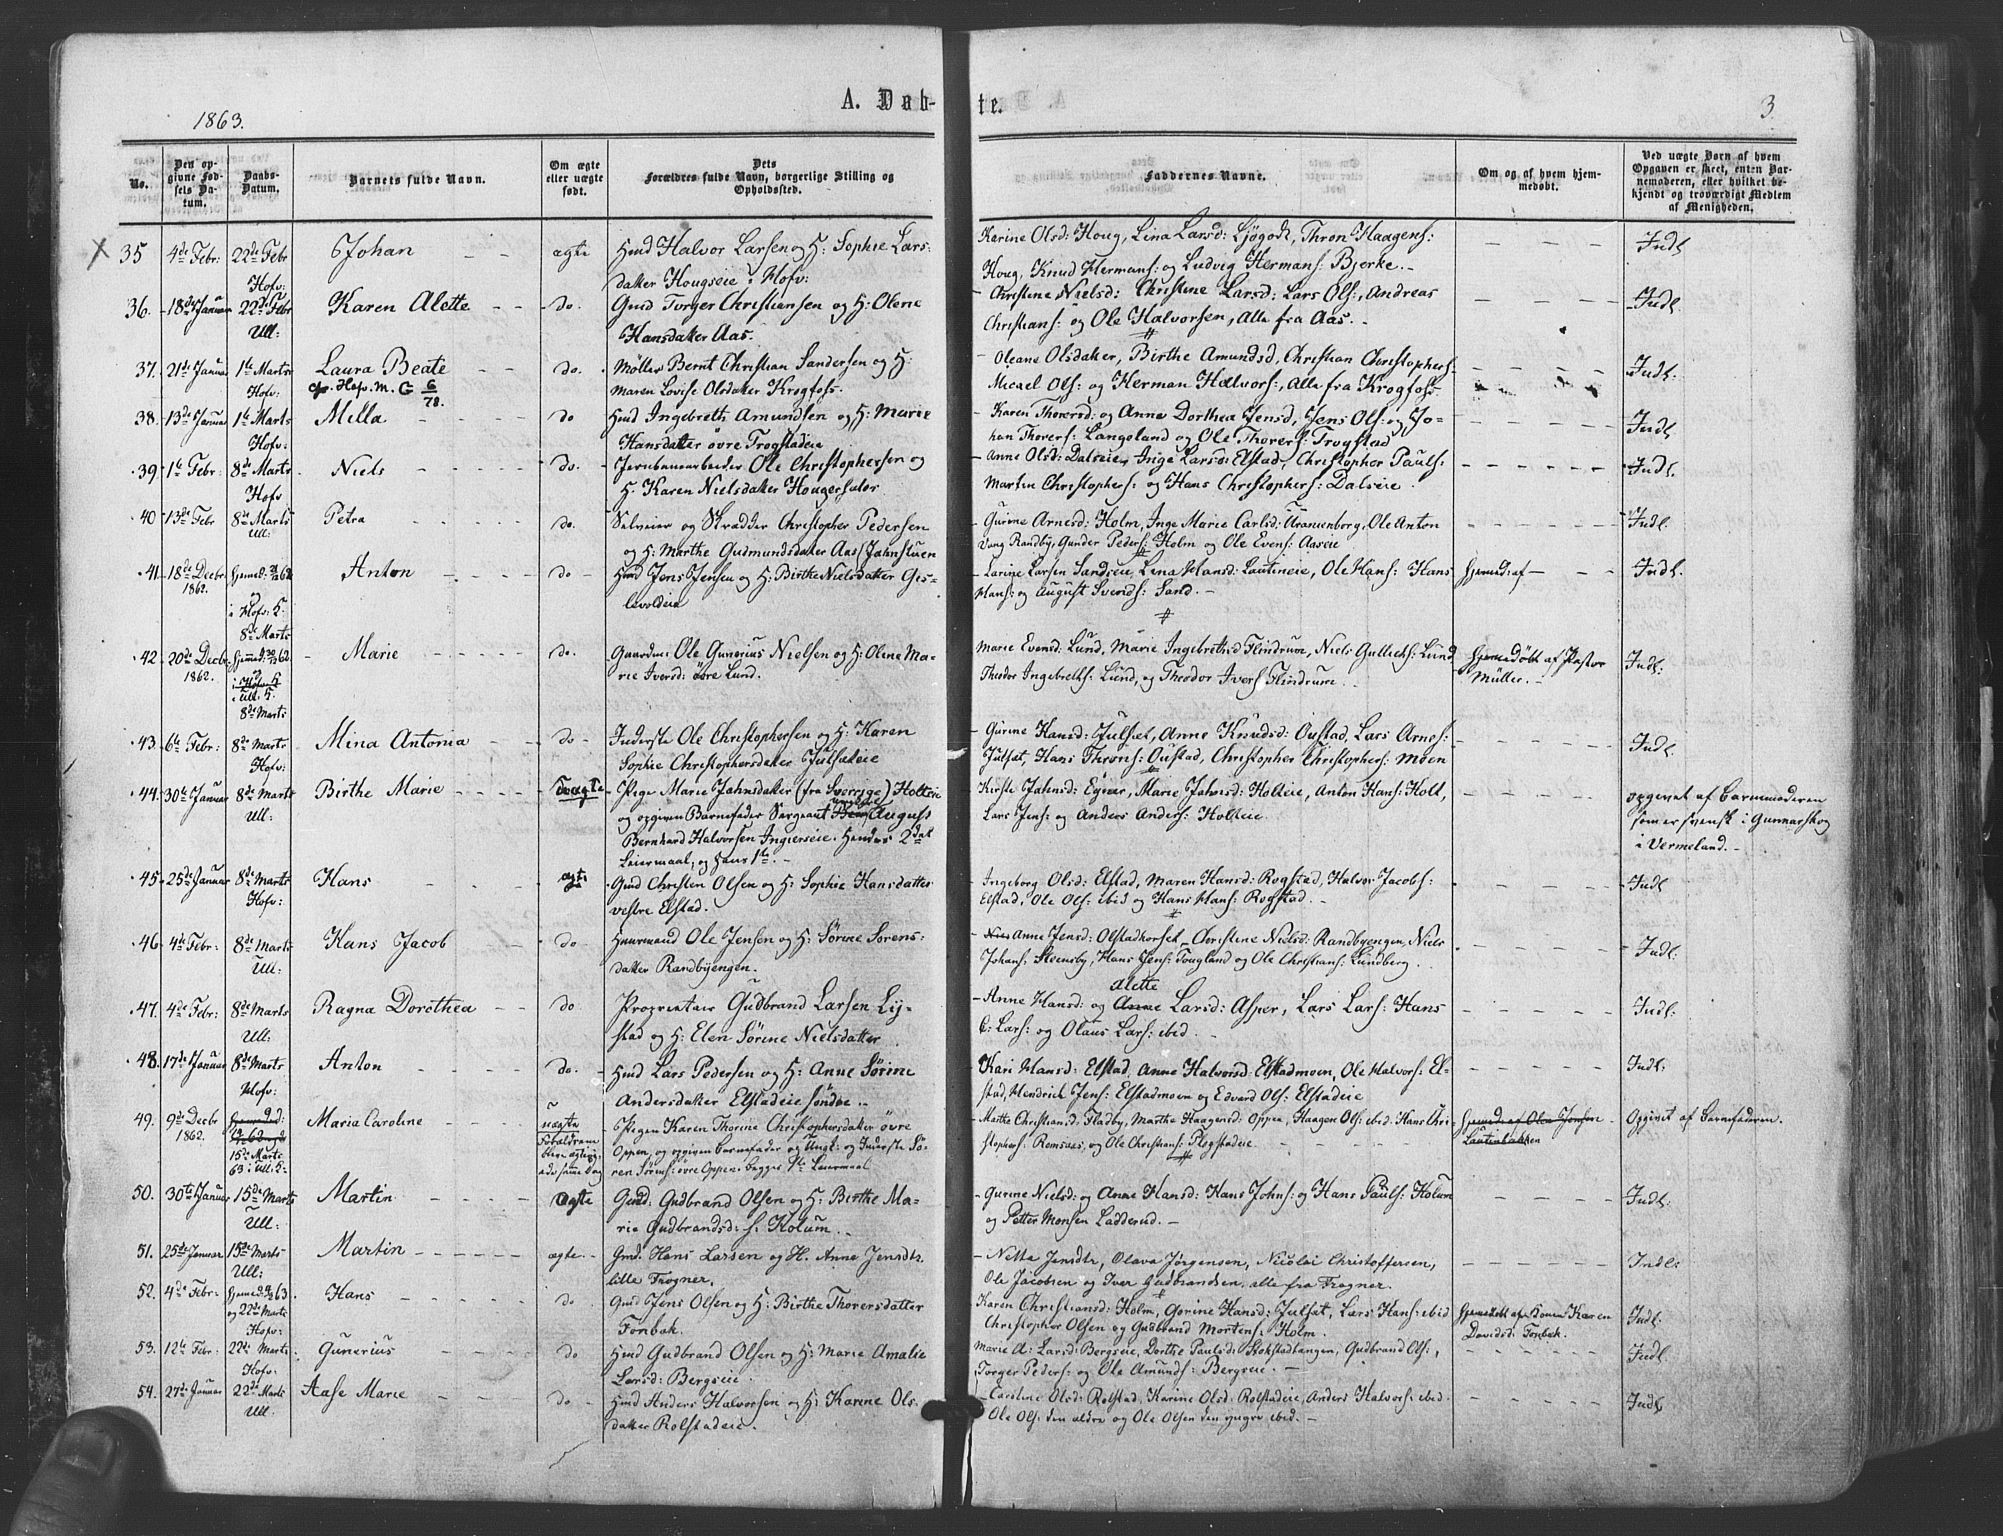 1863.
A. Døb-
te.
3.
No.
Den op-
givne Fød-
sels Da-
tum.
Daabs-
Datum.
Barnets fulde Navn.
Om ægte
eller uægte
født.
Dets
Forældres fulde Navn, borgerlige Stilling og
Opholdssted.
Faddernes Navne.
Om og af hvem hjem-
medøbt.
Ved uægte Børn af hvem
Opgaven er skeet, enten Bar-
nemoderen, eller hvilket be-
kjendt og troværdigt Medlem
af Menigheden.
35 4de Febr: 22de Febr Johan ægte Hmd Halvor Larsen og H: Sophie Lars- Karine Olsd: Houg, Lina Larsd: Ljøgodt, Thron Haagens: Indl
Hofv: datter Hougseie i Hofv: Houg, Knud Hermans: og Ludvig Hermans: Bjerke.
36. 18de Januar 22de Febr Karen Alette do. Gmd Torger Christiansen og H: Olene Christine Nielsd: Christine Larsd: Lars Ols:, Andreas Indl
Ull: Hansdatter Aas. Christians: og Ole Halvorsen, Alle fra Aas.
37. 21de Januar 1ste Marts Laura Beate do. Møller Bernt Christian Sandersen og H: Oleane Olsdatter, Birthe Amundsd, Christian Christophers: Indl:
Hofv: cfr. Hofv. M. G 6/78. Maren Lovise Olsdatter Krogfoss. Micael Ols: og Herman Halvors:, Alle fra Krogfoss
38. 13de Januar 1ste Marts Milla do Hmd Ingebreth Amundsen og H: Marie Karen Thorersd: og Anne Dorthea Jensd, Jens Ols: og Jo- Indl
Hofv: Hansdatter øvre Trogstadeie han Thorers: Langeland og Ole Thorers: Trogstad
39. 1ste Febr 8de Marts Niels do. Jernbanearbeider Ole Christophersen og Anne Olsd: Dalseie, Inge Larsd: Elstad, Christopher Pauls: Indl.
Hofv H. Karen Nielsdatter Hougersæter Martin Christophers: og Hans Christophers: Dalseie.
40 13de Febr 8de Marts Petra do. Selveier og Skrædder Christopher Pedersen Gurine Arnesd: Holm, Inge Marie Carlsd: Uranienborg, Ole Anton Indl.
Ull: og H: Marthe Gudmundsdatter Aas (Jahnstuen Vang Randby, Gunder Peders: Holm og Ole Evens: Aaseie
41. 18de Decbr Hjemmed: 62 Anton do Hmd Jens Jensen og H: Birthe Nielsdatter Gis- Larine Larsen Sandseie, Lena Hansd: Lauteneie, Ole Hans: Hans Hjemmed: af Indl.
1862. levoldeie Hans: og August Sverids: Sand.
i Hofv: K.
8de Marts
42 20de Decbr Hjemmed: 30/12 62 Marie do. Gaardmd: Ole Gunerius Nielsen og H: Olene Ma- Marie Evensd: Lund, Marie Ingebrethsd Flindrum, Niels Gulliks: Lund Hjemmedøbt af Pastor Indl:
1862. i Hofv: K rie Iversd: øvre Lund. Theodor Ingebreths: Lund, og Theodor Ivers: Flindrum. Müller.
i Ull. K.
8de Marts
43. 6te Febr: 8de Marts Mina Antonia do Inderste Ole Christophersen og H: Karen Gurine Hansd: Julsæt, Anne Knudsd: Oustad, Lars Arnes: Indl.
Hofv: Sophie Christophersdatter Julsæteie Julsæt, Hans Throns: Oustad, Christopher Christophers: Moen
44. 30te Januar 8de Marts Birthe Marie Uægte Pige Marie Jahnsdatter (fra Sverrige) Holteie Kirste Jahnsd: Egner, Marie Jahnsd: Holteie, Anton Hans: Holt, opgivet af Barnemoderen
Ull: og opgiven Barnefader Sergeant August Lars Jens: og Anders Anders: Holteie som er svensk i Gunnarskog
Bernhard Halvorsen Ingierseie. Hendes 2det i Vermeland.
Leiermaal, og hans 1ste.
45. 25de Januar 8de Marts Hans ægte Gmd Christen Olsen og H: Sophie Hansdatter Ingeborg Olsd: Elstad, Maren Hansd: Rogstad, Halvor Jacobs: Indl
Hofv: vestre Elstad. Elstad, Ole Ols: ibid og Hans Hans: Rogstad.
46 4de Febr: 8de Marts Hans Jacob do Huusmand Ole Jensen og H: Sørine Sørens- Anne Jensd: Olstadkorset, Christine Nielsd: Randbyengen, Niels Indl:
Ull: datter Randbyengen. Johans: Steensby, Hans Jens: Tougland og Ole Christians: Lundberg.
47. 4de Febr: 8de Marts Ragna Dorothea do Proprietær Gudbrand Larsen Lij- Anne Hansd: og Anne Alette Larsd: Asper, Lars Lars: Hans Indl:
Ull: stad og H: Elen Sørine Nielsdatter L: Lars: og Olaus Lars: ibid.
48. 17de Januar 8de Marts Anton do. Hmd Lars Pedersen og H: Anne Sørine Kari Hansd: Elstad, Anne Halvorsd: Elstadmoen, Ole Halvors: El- Indl:
Hofv: Andersdatter Elstadeie søndre. stad, Hendrick Jens: Elstadmoen og Edvard Ols: Elstadeie
49. 9de Decbr Hjemmed: Maria Caroline uægte Pigen Karen Thorine Christophersdatter øvre Marthe Christiansd: Fladby, Marthe Haagensd: Oppen, Haagen Ols: ibid: Hans Chri- Hjemmed: af Olea Jensen Opgivet af Barnefaderen.
1862. Forældrene Oppen, og opgiven Barnefader Ungk: og Inderste Sø- stophers: Remsaas, og Ole Christians: Flegstadeie Lautenbakken
15de Marts ren Sørens: øvre Oppen, begges 1ste Leiermaal
63 i Ull. K.
50. 30te Januar 15de Marts Martin ægte Gmd. Gudbrand Olsen og H: Birthe Ma- Gurine Nielsd: og Anne Hansd: Hans Johns: og Hans Pauls: Holum Indl:
Ull: rie Gudbrandsd: S. Holum. og Petter Monsen Ladderud.
51. 25de Januar 15de Marts Martin ægte Gmd. Hans Larsen og H. Anne Jensdtr. Netta Jensdtr, Olava Jørgensen, Nicolai Christoffersen, Indl:
Ull: lille Frogner. Ole Jacobsen og Iver Gudbrandsen, alle fra Frogner.
52. 4de Febr: Hjemmed: 63. Hans do Gmd Jens Olsen og H: Birthe Thorersdatter Karen Christiansd: Holm, Gorine Hansd: Julsæt, Lars Hans: ibid Hjemmedøbt af Konen Karen Indl.
og 22de Marts Fonbæk. Christopher Olsen og Gudbrand Mortens: Holm. Davidsd: Fonbæk.
Hofv:
53. 12te Febr: 22de Marts Gunerius do Hmd Gudbrand Olsen og H: Marie Amalie Marie A: Larsd: Bergseie, Dorthe Paulsd: Stokstadtangen, Gudbrand Ols:, Indl.
Hofv: Larsd: Bergseie. Torger Peders: og Ole Amunds: Bergseie.
54. 27de Januar 22de Marts Aase Marie do Hmd Anders Halvorsen og H: Karine Ols- Caroline Olsd: Rolstad, Karine Olsd: Rolstadeie, Anders Halvors: ibid. Indl.
Ull. datter Rolstadeie. Ole Ols: den ældre og Ole Olsen den yngre ibid.